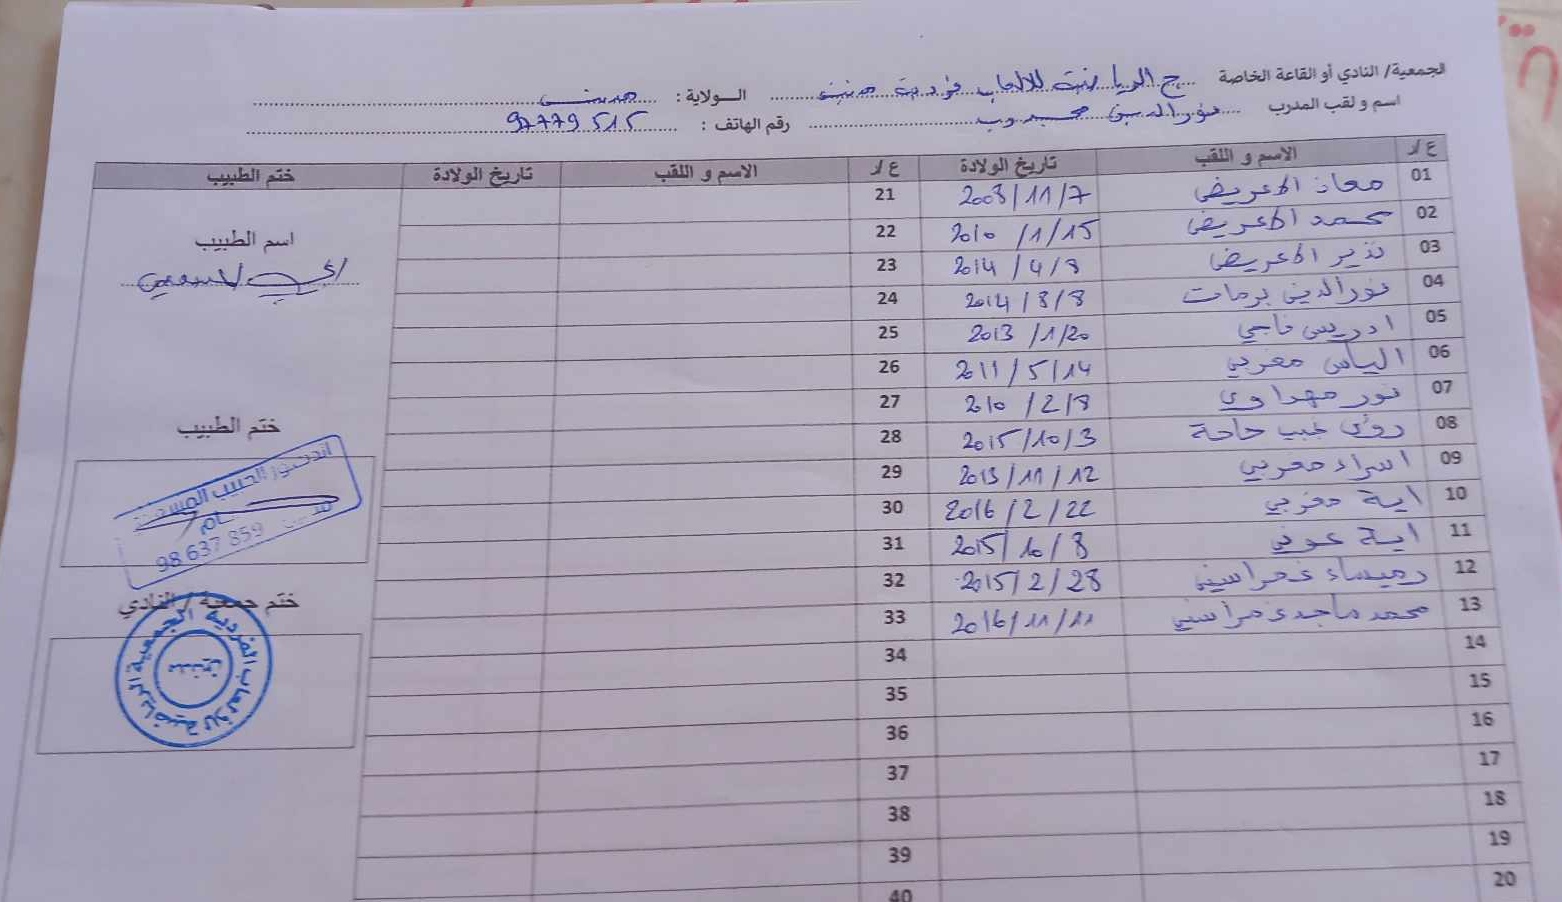 الجمعية/ النادي أو القاعة الخاصة ج الرياضية للألعاب فردية الولاية : مدنين
اسم و لقب المدرب نورالدين رقم الهاتف : 97779515
ع/ر الاسم و اللقب تاريخ الولادة ع/ر الاسم و اللقب تاريخ الولادة ختم الطبيب
01 معاذ الاعريض 2008/11/7 21
02 محمد الاعريض 2010/1/15 22
03 نذير الاعريض 2014/4/8 23
04 نورالدين برمات 2014/8/8 24
05 ادريس ناجي 2013/1/20 25
06 الياس مغربي 2011/5/14 26
07 نور مهداوي 2010/2/8 27
08 رؤى 2015/10/3 28
09 اسراء مغربي 2013/11/12 29
10 اية مغربي 2016/2/22 30
11 اية عوني 2015/10/8 31
12 رميساء غمراسني 2015/2/28 32
13 محمد ماجد غمراسني 2016/11/11 33
14 34
15 35
16 36
17 37
18 38
19 39
20 40
اسم الطبيب
ختم الطبيب
الحبيب
98 637 859
ختم جمعية / النادي
الجمعية الرياضية للألعاب الفردية